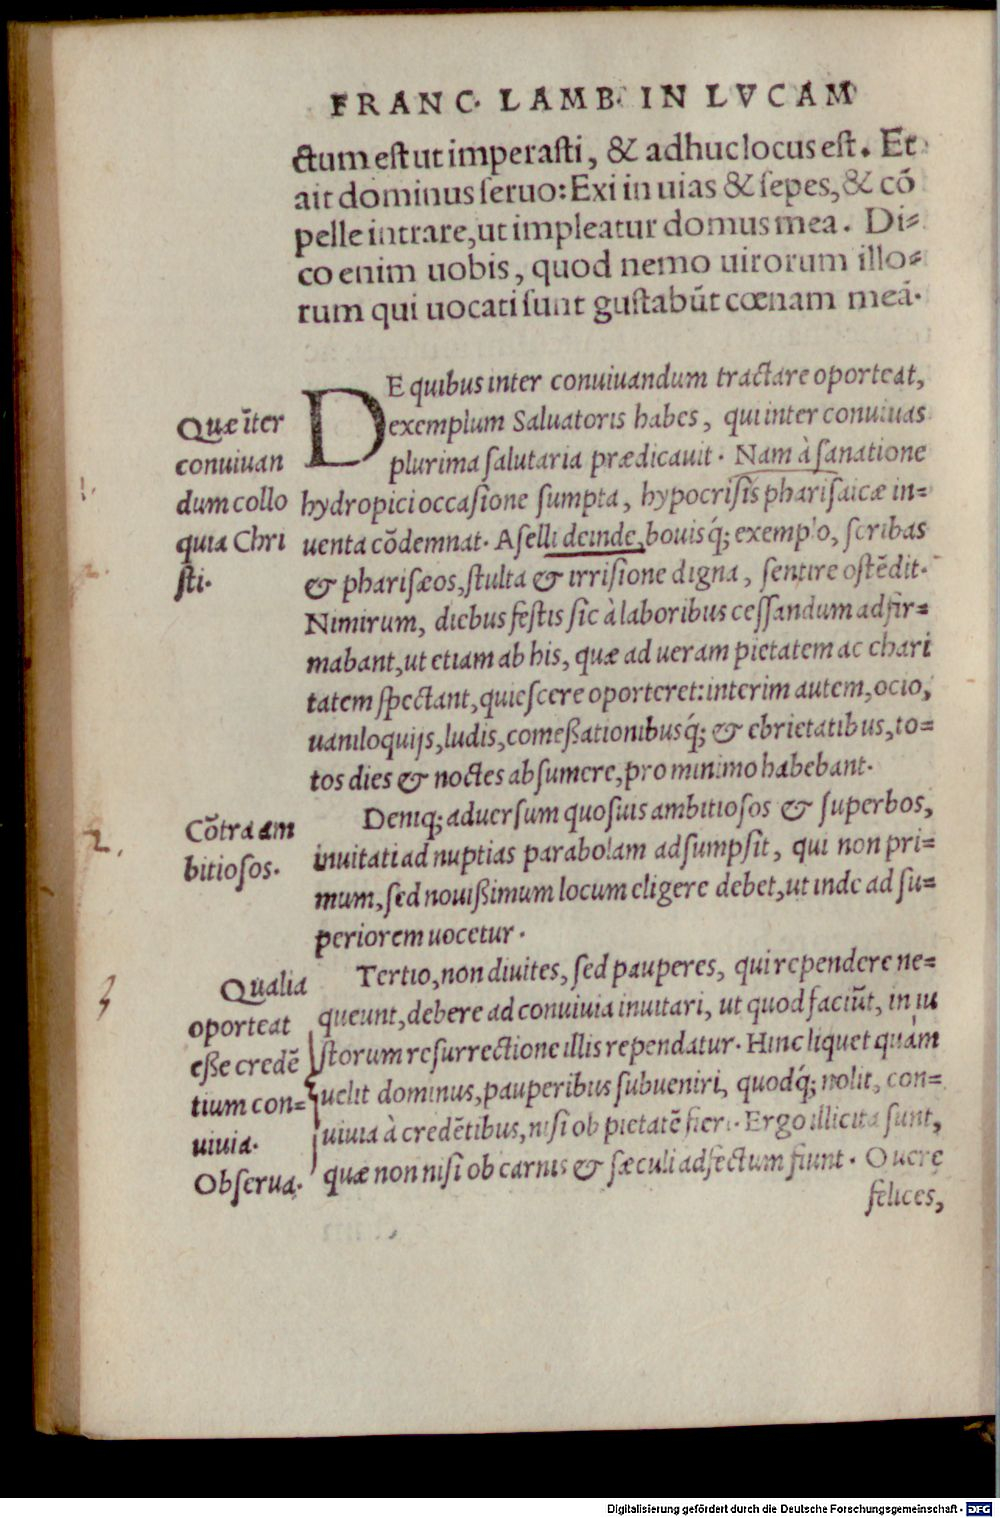 FRANC. LAMB. IN LVCAM
ctum est ut imperasti, & adhuc locus est. Et
ait dominus seruo: Exi in uias & sepes, & cō
pelle intrare, ut impleatur domus mea. Di-
co enim uobis, quod nemo uirorum illo-
rum qui uocati sunt gustabūt cœnam meā.
DE quibus inter conuiuandum tractare oporteat,
exemplum Saluatoris habes, qui inter conuiuas
plurima salutaria prædicauit. Nam à sanatione
hydropici occasione sumpta, hypocrisis pharisaicæ in-
uenta cōdemnat. Aselli deinde, bouisq́; exemplo, scribas
& pharisæos, stulta & irrisione digna, sentire ostēdit.
Nimirum, diebus festis sic à laboribus cessandum adfir-
mabant, ut etiam ab his, quæ ad ueram pietatem ac chari
tatem spectant, quiescere oporteret: interim autem, ocio,
uaniloquijs, ludis, comeßationibusq́; & ebrietatibus, to-
tos dies & noctes absumere, pro minimo habebant.
Quæ īter
conuiuan
dum collo
quia Chri
sti.
Deniq; aduersum quosuis ambitiosos & superbos,
inuitati ad nuptias parabolam adsumpsit, qui non pri-
mum, sed nouißimum locum eligere debet, ut inde ad su-
periorem uocetur.
Cōtra am
bitiosos.
2.
Tertio, non diuites, sed pauperes, qui rependere ne-
queunt, debere ad conuiuia inuitari, ut quod faciūt, in iu
storum resurrectione illis rependatur. Hinc liquet quàm
uelit dominus, pauperibus subueniri, quodq́; nolit, con-
uiuia à credētibus, nisi ob pietatē fieri. Ergo illicita sunt,
quæ non nisi ob carnis & sæculi adfectum fiunt. O uere
felices,
Qualia
oporteat
eße credē
tium con-
uiuia.
Obserua.
3
Digitalisierung gefördert durch die Deutsche Forschungsgemeinschaft - DFG